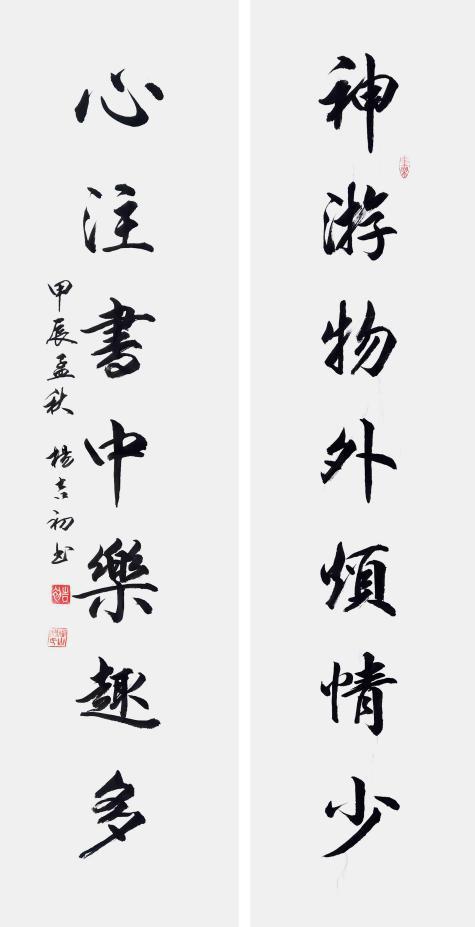 神游物外煩情少
心注書中樂趣多
甲辰孟秋 楊吉初书